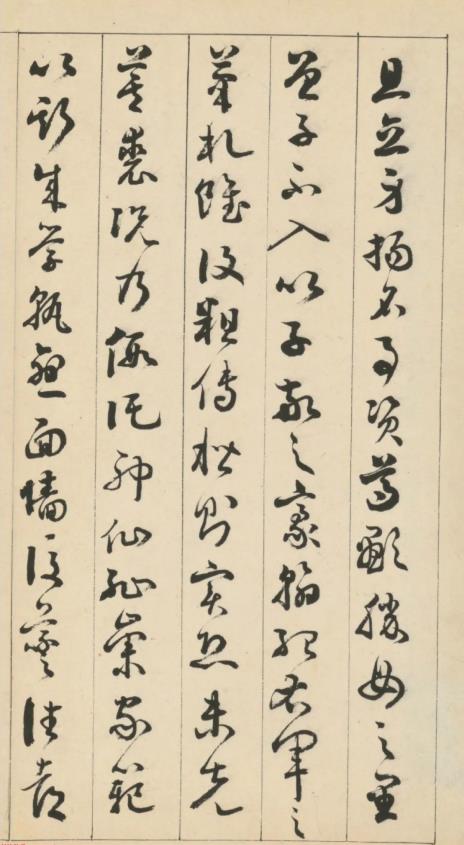 且立身揚名事資尊顯勝母之里
曾子不入以子敬之豪翰紹右軍之
筆札雖復粗傳楷則實恐未克
箕裘況乃假託神仙恥崇家範
以斯成學孰愈面牆後羲之往都